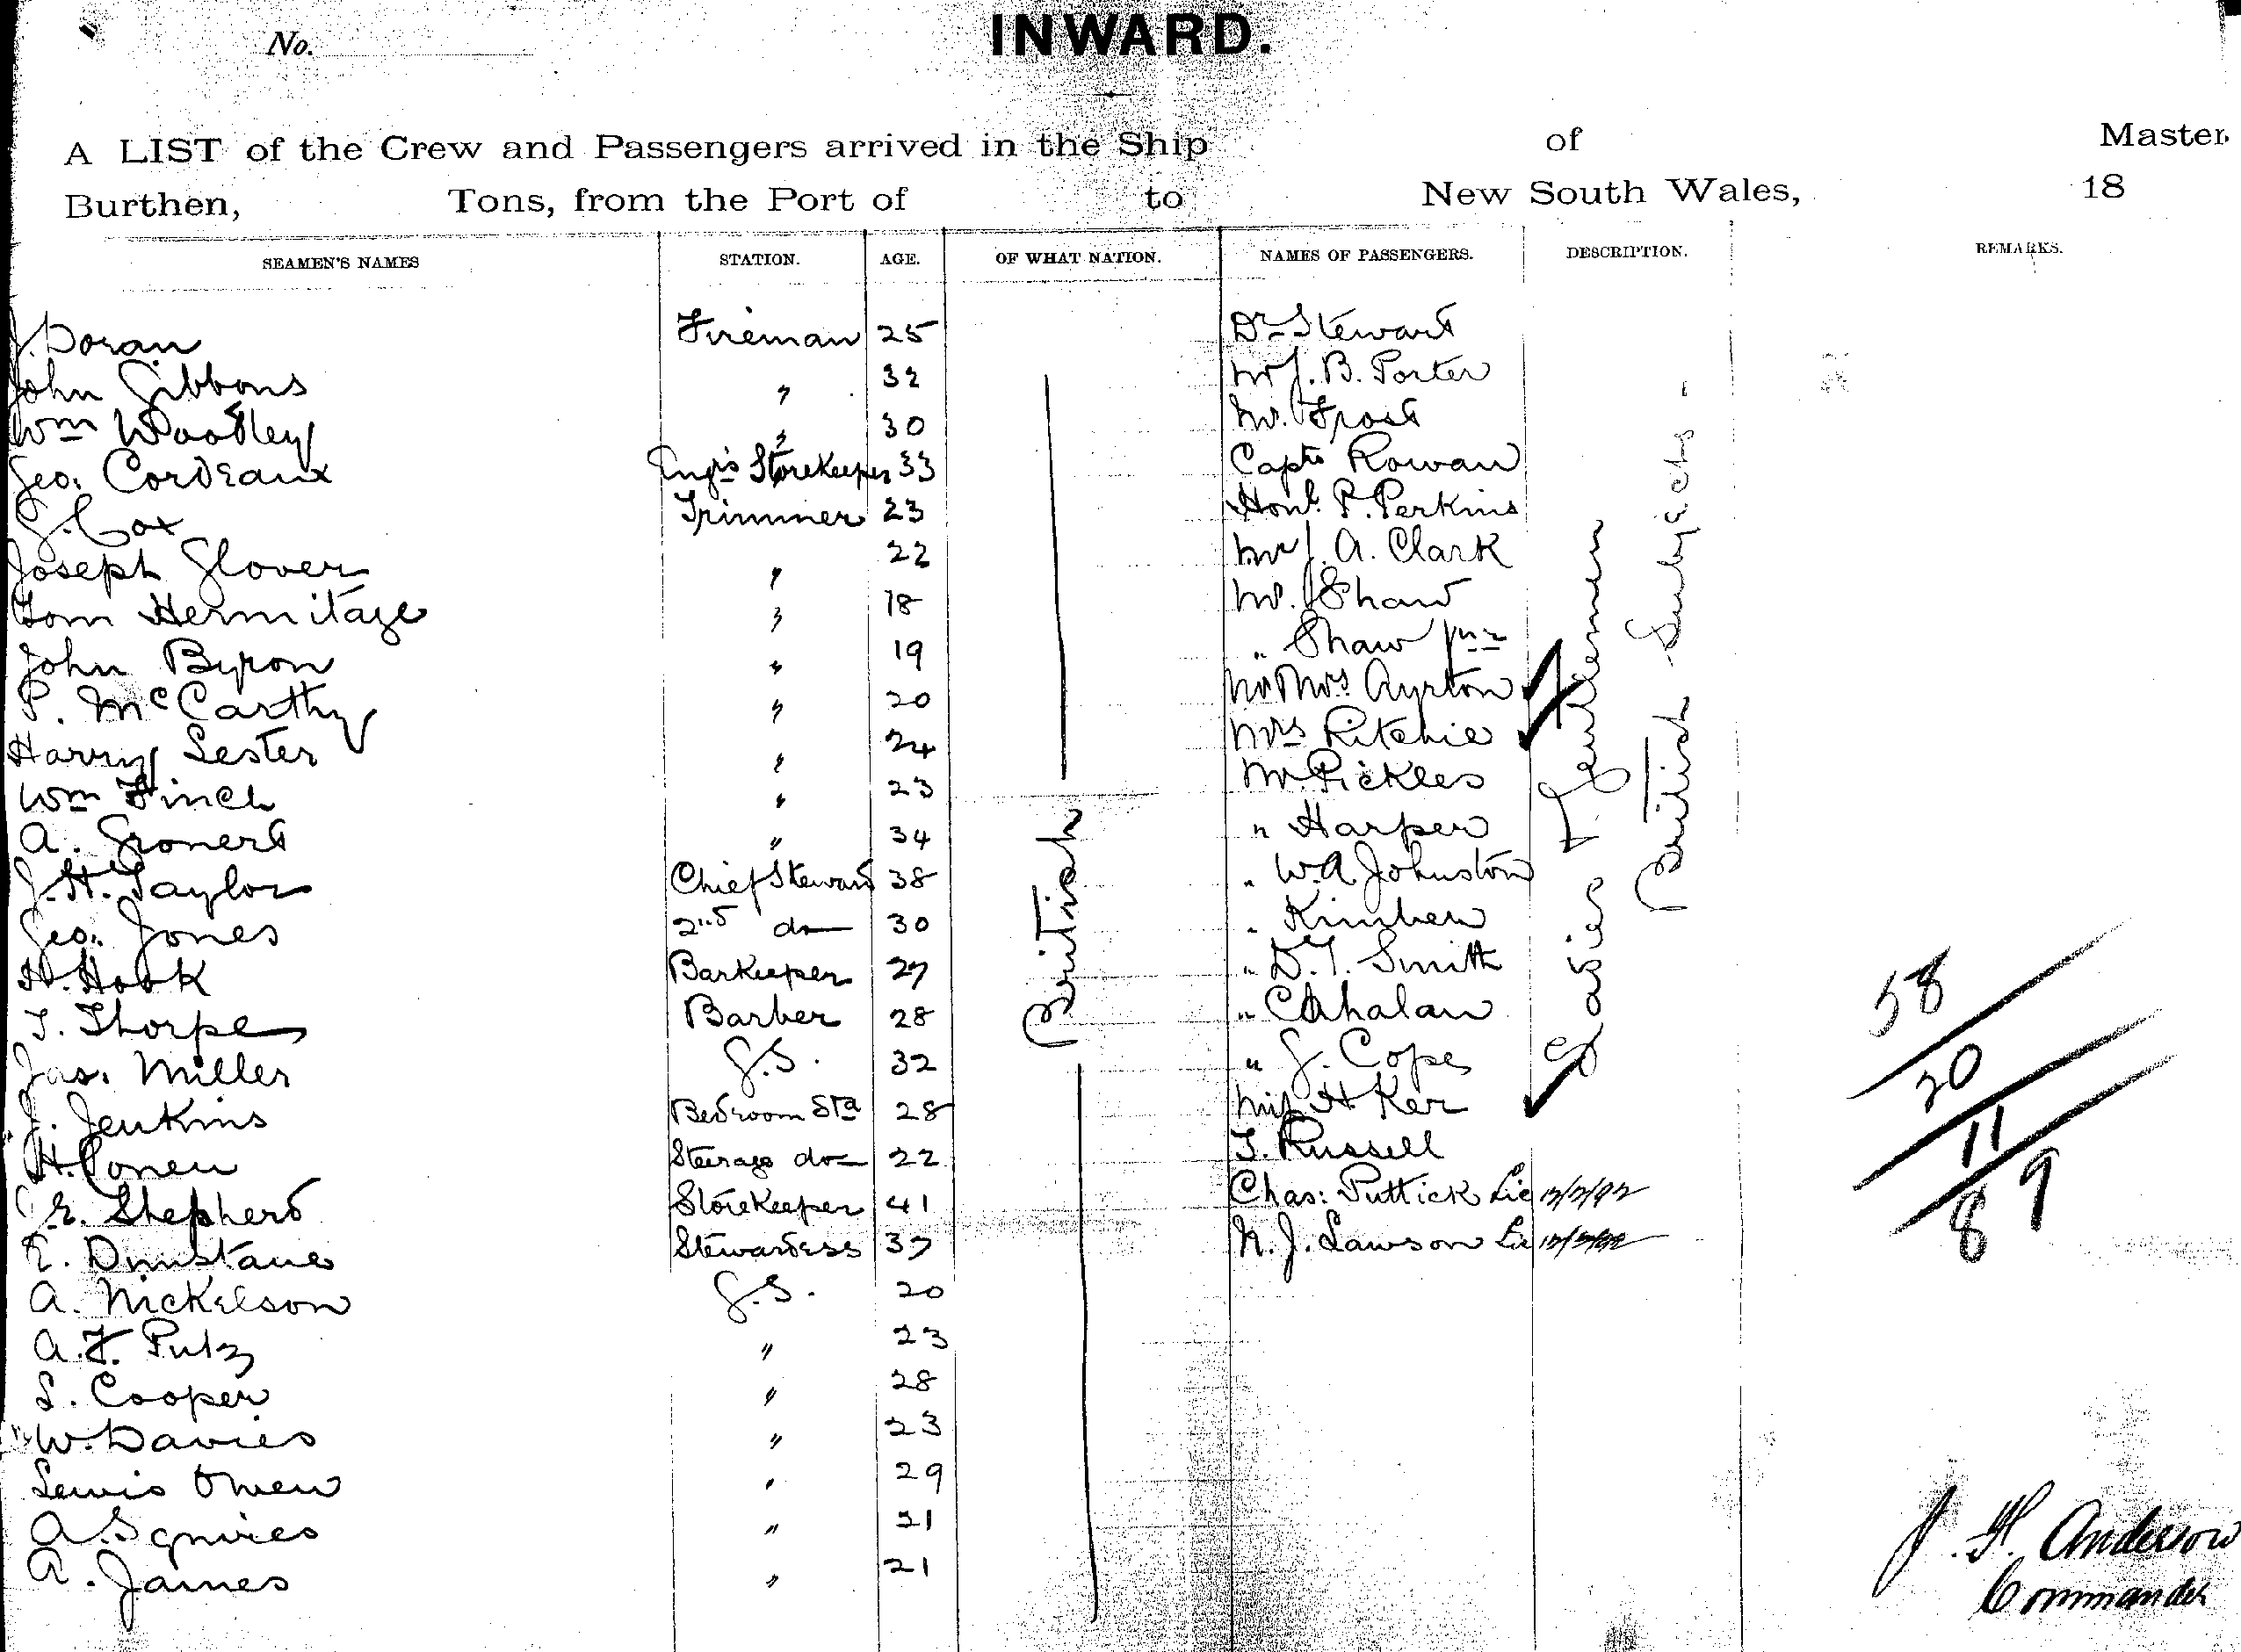 No.
INWARD.
A LIST of the Crew and Passengers arrived in the Ship of Master
Burthen, Tons, from the Port of to New South Wales, 18
SEAMEN'S NAMES STATION. AGE. OF WHAT NATION. NAMES OF PASSENGERS. DESCRIPTION. REMARKS.
J. Doran Fireman 25 Dr Stewart
John Gibbons " 32 Mr J. B. Porter
Wm Woodley " 30 Mr. Frost
Geo. Cordeaux Engrs Storekeeper 33 Capt Rowan
G. Cox Trimmer 23 Honl. P. Perkins
Joseph Glover " 22 Mr J. A. Clark
Tom Hermitage " 18 Mr. Shaw
John Byron " 19 " Shaw Jnr
P. McCarthy " 20 Mr Mrs. Ayrton
Harry Lester " 24 Mrs Ritchie
Wm Finch " 23 Mr Pickles
A. Gronert " 34 " Harper
J. H. Taylor Chief Steward 38 " W.A. Johnston
Geo. Jones 2nd do 30 " Kimber
H. Hook Barkeeper 27 " D.T. Smith
T. Thorpe Barber 28 " Cahalan
Jas. Miller G.S. 32 " G. Cope
J. Jenkins Bedroom Std 28 Miss H Ker
H. Conen Steerage do 22 T. Russell
E. Shepherd Storekeeper 41 Chas: Puttick Lie 12/2/92
E. Dunstane Stewardess 37 N. J. Lawson Lie 12/2/92
A. Nickelson G.S. 20
A. F. Putz " 23
S. Cooper " 28
W. Davies " 23
Lewis Owen " 29
A. Squires " 21
A. James " 21
British
Ladies & Gentlemen
British Subjects
58
20
11
89
J. H. Anderson
Commander